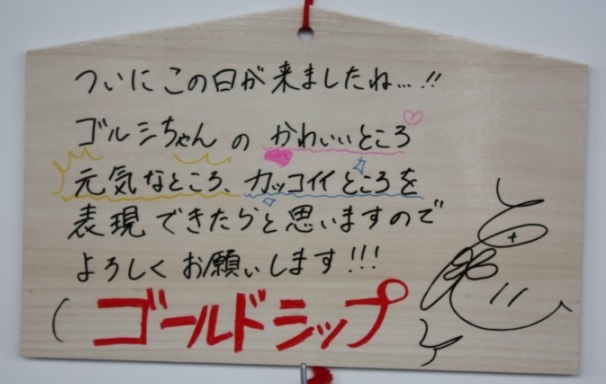 ついにこの日が来ましたね…!!
ゴルシちゃんの かわいいところ
元気なところ、カッコイイところを
表現できたらと思いますので
よろしくお願いします!!!
(ゴールドシップ